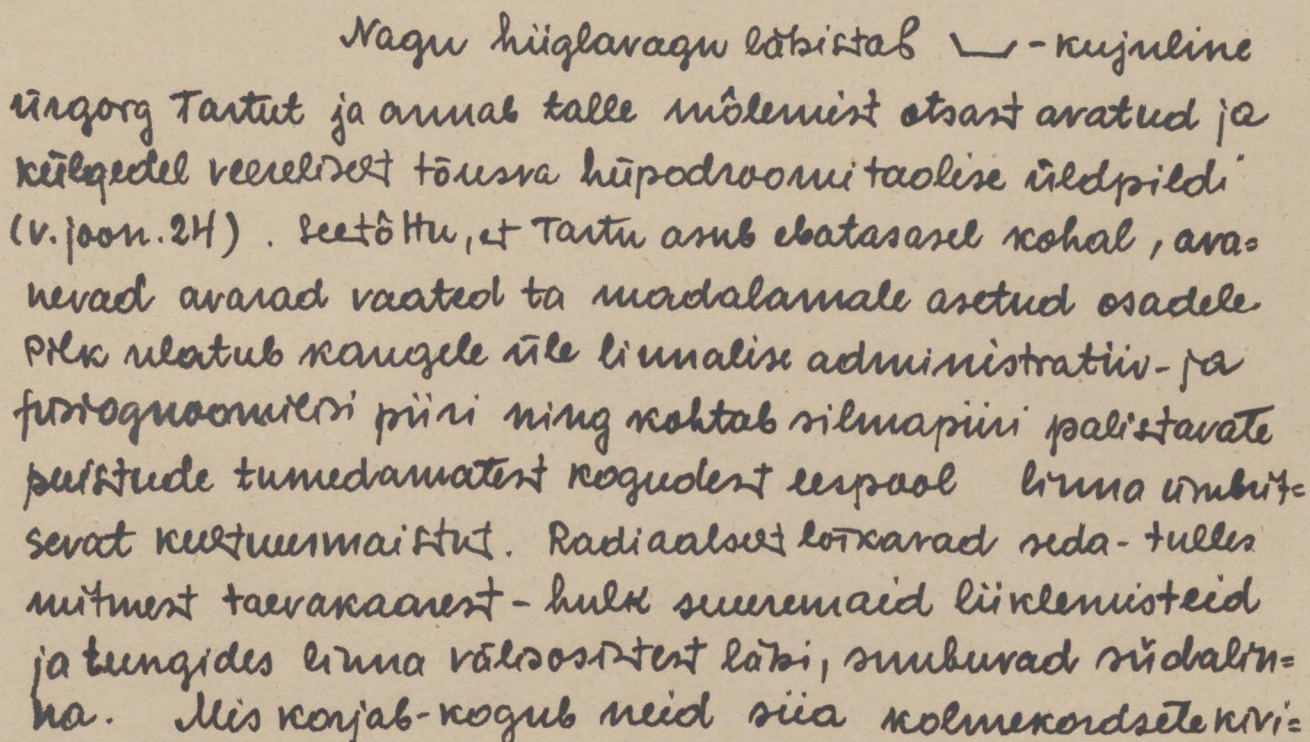 Nagu hiiglavagu läbistab \_/ -kujuline
ürgorg Tartut ja annab talle mõlemist otsast avatud ja
külgedel veereliselt tõusva hüpodroomitaolise üldpildi
(v. joon. 24). Seetõttu, et Tartu asub ebatasasel kohal, ava=
nevad avarad vaated ta madalamale asetud osadele.
Pilk ulatub kaugele üle linnalise administratiiv- ja
füsiognoomilisi piiri ning kohtab silmapiiri palistavate
puistude tumedamatest kogudest eespool linna ümbrit=
sevat kultuurmaistut. Radiaalselt lõikavad seda - tulles
mitmest taevakaarest - hulk suuremaid liiklemisteid
ja tungides linna välisosistest läbi, suubuvad südalin=
na. Mis korjab-kogub neid siia kolmekordsete kivi=